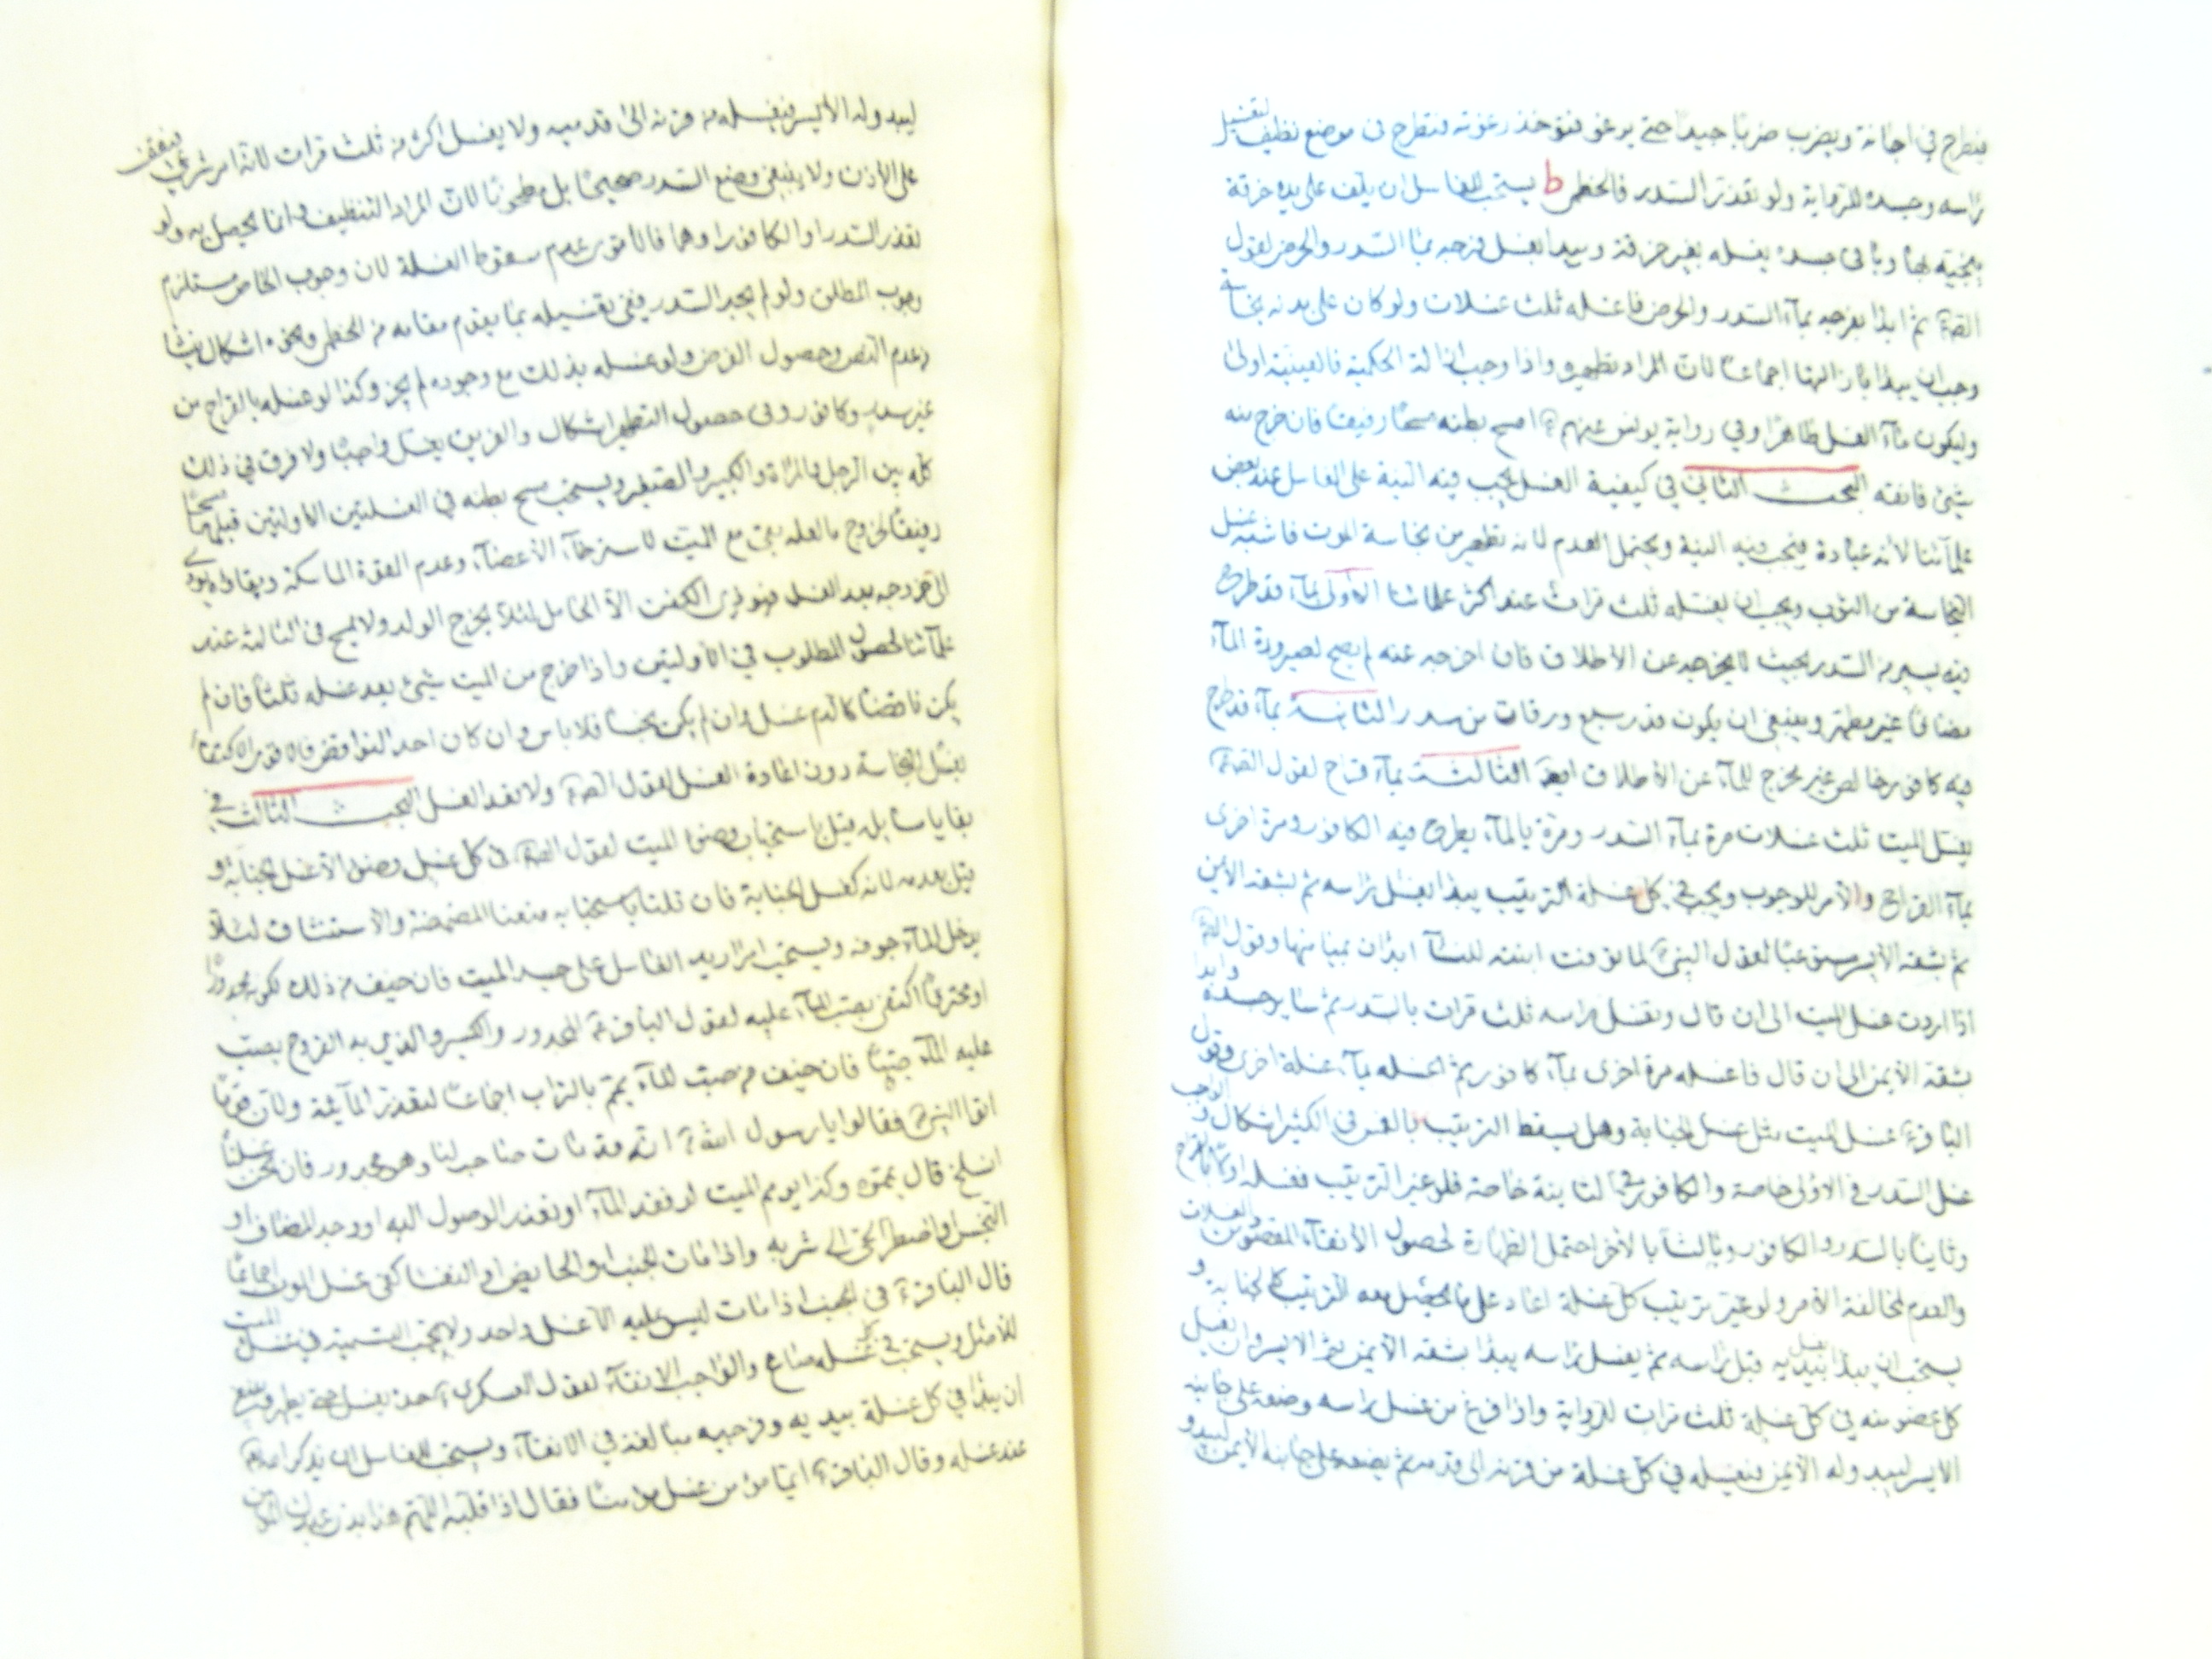 فتطرح في اجانة ويضرب ضربا جيدا حتى يرغو فتؤخذ رغوته فتطرح في موضع نظيف لتغسيل
راسه وجسده للرواية ولو تعذر السدر فالخطمي ط يستحب للغاسل ان يلف على يده خرقة
ينجيه بها وباقي جسده يغسله بغير خرقة ويبدا بغسل فرجه بماء السدر والحرض لقول
الصادق ثم ابدا بفرجه بمآء السدر والحرض فاغسله ثلث غسلات ولو كان على بدنه نجاسة
وجب ان يبدا بازالتها اجماعا لان المراد تطهيره واذا وجب ازالة الحكمية فالعينية اولى
وليكون مآء الغسل طاهرا وفي رواية يونس عنهم ع امسح بطنه مسحا رفيقا فان خرج منه
شيئ فانقه البحث الثاني في كيفية الغسل يجب فيه النية على الغاسل عند بعض
علمآئنا لانه عبادة فيجب فيه النية ويحتمل العدم لانه تطهير من نجاسة الموت فاشبه غسل
النجاسة من الثوب ويجب ان يغسله ثلث مرات عند اكثر علمائنا الاولى بمآء قد طرح
فيه يسير من السدر بحيث لا يخرجه عن الاطلاق فان اخرجه عنه لم يصح لصيرورة المآء
مضافا غير مطهر وينبغي ان يكون قدر سبع ورقات من سدر الثانية بمآء قد طرح
فيه كافور خالص غير مخرج للمآء عن الاطلاق ايضا الثالثة بمآء قراح لقول الصادق
يغسل الميت ثلث غسلات مرة بمآء السدر ومرة بالمآء يطرح فيه الكافور ومرة اخرى
بمآء القراح والامر للوجوب ويجب في كل غسلة الترتيب يبدا بغسل راسه ثم بشقه الايمن
ثم بشقه الايسر لقول النبي لما توفت ابنته للنسآء ابدان بميامنها وقول
اذا اردت غسل الميت الى ان قال وتغسل راسه ثلث مرات بالسدر ثم ساير جسده وابدا
بشقه الايمن الى ان قال فاغسله مرة اخرى بمآء كافور ثم اغسله بمآء غسلة اخرى وقول
الباقر ع غسل الميت مثل غسل الجنابة وهل يسقط الترتيب بالغمس في الكثير اشكال والواجب
غسل السدر في الاولى خاصة والكافور في الثانية خاصة فلو غير الترتيب فغسله اولا بالقراح
وثانيا بالسدر والكافور وثالثا بالاخر احتمل الطهارة لحصول الانقآء المقصود من الغسلات
والعدم لمخالفة الامر ولو غير ترتيب كل غسلة اعاد على ما يحصل معه الترتيب كالجنابة و
يستحب ان يبدا بغسل يديه قبل راسه ثم يغسل راسه يبدا بشقه الايمن ثم الايسر وان يغسل
كل عضو منه في كل غسلة ثلث مرات للرواية واذا فرغ من غسل راسه وضعه على جانبه
الايسر ليبدو له الايمن فيغسله في كل غسلة من قرنه الى قدمه ثم يضعه على جانبه الايمن ليبدو
ليبدو له الايسر فيغسله من قرنه الى قدميه ولا يغسل اكثر من ثلث مرات لانه امر شرعي فيقف
على الاذن ولا ينبغي وضع السدر صحيحا بل مطحونا لان المراد التنظيف وانما يحصل به ولو
تعذر السدر او الكافور او هما فالاقوى عدم سقوط الغسلة لان وجوب الخاص مستلزم
وجوب المطلق ولو لم يجد السدر ففي تغسيله بما يقوم مقامه من الخطمي ونحوه اشكال ينشا
من عدم النص وحصول الغرض ولو غسله بذلك مع وجوده لم يجز وكذا لو غسله بالقراح من
غير سدر وكافور وفي حصول التطهير اشكال والغريق يغسل واجبا ولا فرق في ذلك
كله بين الرجل والمراة والكبير والصغير ويستحب مسح بطنه في الغسلتين الاوليتين قبلهما مسحا
رفيقا لخروج ما لعله بقي مع الميت لاسترخآء الاعضآء وعدم القوة الماسكة وربما يؤدي
الى خروجه بعد الغسل فيؤذي الكفن الا الحامل لئلا يخرج الولد ولا يمسح في الثالثة عند
علمآئنا لحصول المطلوب في الاوليتين واذا خرج من الميت شيئ بعد غسله ثلثا فان لم
يكن ناقضا كالدم غسل وان لم يكن نجسا فلا باس وان كان احد النواقض فالاقوى الاكتفآء
بغسل النجاسة دون اعادة الغسل لقول الصادق ولا تعد الغسل البحث الثالث في
بقايا مسائله قيل باستحباب وضوء الميت لقول الصادق في كل غسل وضوء الا غسل الجنابة و
قيل بعدمه لانه كغسل الجنابة فان قلنا باستحبابه منعنا المضمضة والاستنشاق لئلا
يدخل المآء جوفه ويستحب امرار يد الغاسل على جسد الميت فان خيف من ذلك لكونه مجدورا
او محترقا اكتفى بصب المآء عليه لقول الباقر ع المجدور والكسير والذي به القروح يصب
عليه المآء صبا فان خيف من صب المآء يمم بالتراب اجماعا لتعذر المائية ولان قوما
اتوا النبي فقالوا يا رسول الله انه قد مات صاحب لنا وهو مجدور فان نحن غسلناه
انسلخ قال يمموه وكذا يومم الميت لو فقد المآء او تعذر الوصول اليه او وجد المضاف او
النجس او اضطر الحي الى شربه واذا مات الجنب او الحايض او النفسا كفى غسل الموت اجماعا
قال الباقر ع في الجنب اذا مات ليس عليه الا غسل واحد ولا يجب التسمية في غسل الميت
للاصل ويستحب في كل غسلة صاع والواجب الانقآء لقول العسكري ع حده يغسل حتى يطهر
ان يبدا في كل غسلة بيديه وفرجيه مبالغة في الانقآء ويستحب للغاسل ان يذكر الله
عند غسله وقال الباقر ع ايما مؤمن غسل مؤمنا فقال اذا قلبه اللهم هذا بدن عبدك المؤمن